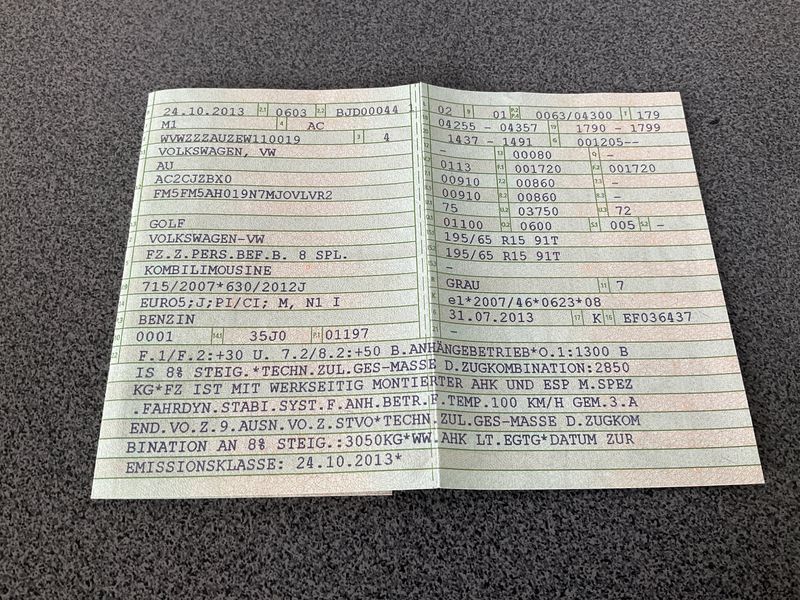 24.10.2013 2.1 0603 2.2 BJD00044 1
M1 4 AC
WVWZZZAUZEW110019 3 4
VOLKSWAGEN, VW
AU
AC2CJZBX0
FM5FM5AH019N7MJOVLVR2
GOLF
VOLKSWAGEN-VW
FZ.Z.PERS.BEF.B. 8 SPL.
KOMBILIMOUSINE
715/2007*630/2012J
EURO5;J;PI/CI; M, N1 I
BENZIN
0001 14.1 35J0 P.1 01197
02 9 01 P.2 P.4 0063/04300 T 179
04255 - 04357 19 1790 - 1799
1437 - 1491 G 001205--
- 13 00080 Q -
0113 F.1 001720 F.2 001720
00910 7.2 00860 7.3 -
00910 8.2 00860 8.3 -
75 U.2 03750 U.3 72
01100 O.2 0600 S.1 005 S.2 -
195/65 R15 91T
195/65 R15 91T
-
GRAU 11 7
e1*2007/46*0623*08
31.07.2013 17 K 16 EF036437
-
F.1/F.2:+30 U. 7.2/8.2:+50 B.ANHÄNGEBETRIEB*O.1:1300 B
IS 8% STEIG.*TECHN.ZUL.GES-MASSE D.ZUGKOMBINATION:2850
KG*FZ IST MIT WERKSEITIG MONTIERTER AHK UND ESP M.SPEZ
.FAHRDYN.STABI.SYST.F.ANH.BETR.F.TEMP.100 KM/H GEM.3.A
END.VO.Z.9.AUSN.VO.Z.STVO*TECHN.ZUL.GES-MASSE D.ZUGKOM
BINATION AN 8% STEIG.:3050KG*WW.AHK LT.EGTG*DATUM ZUR
EMISSIONSKLASSE: 24.10.2013*